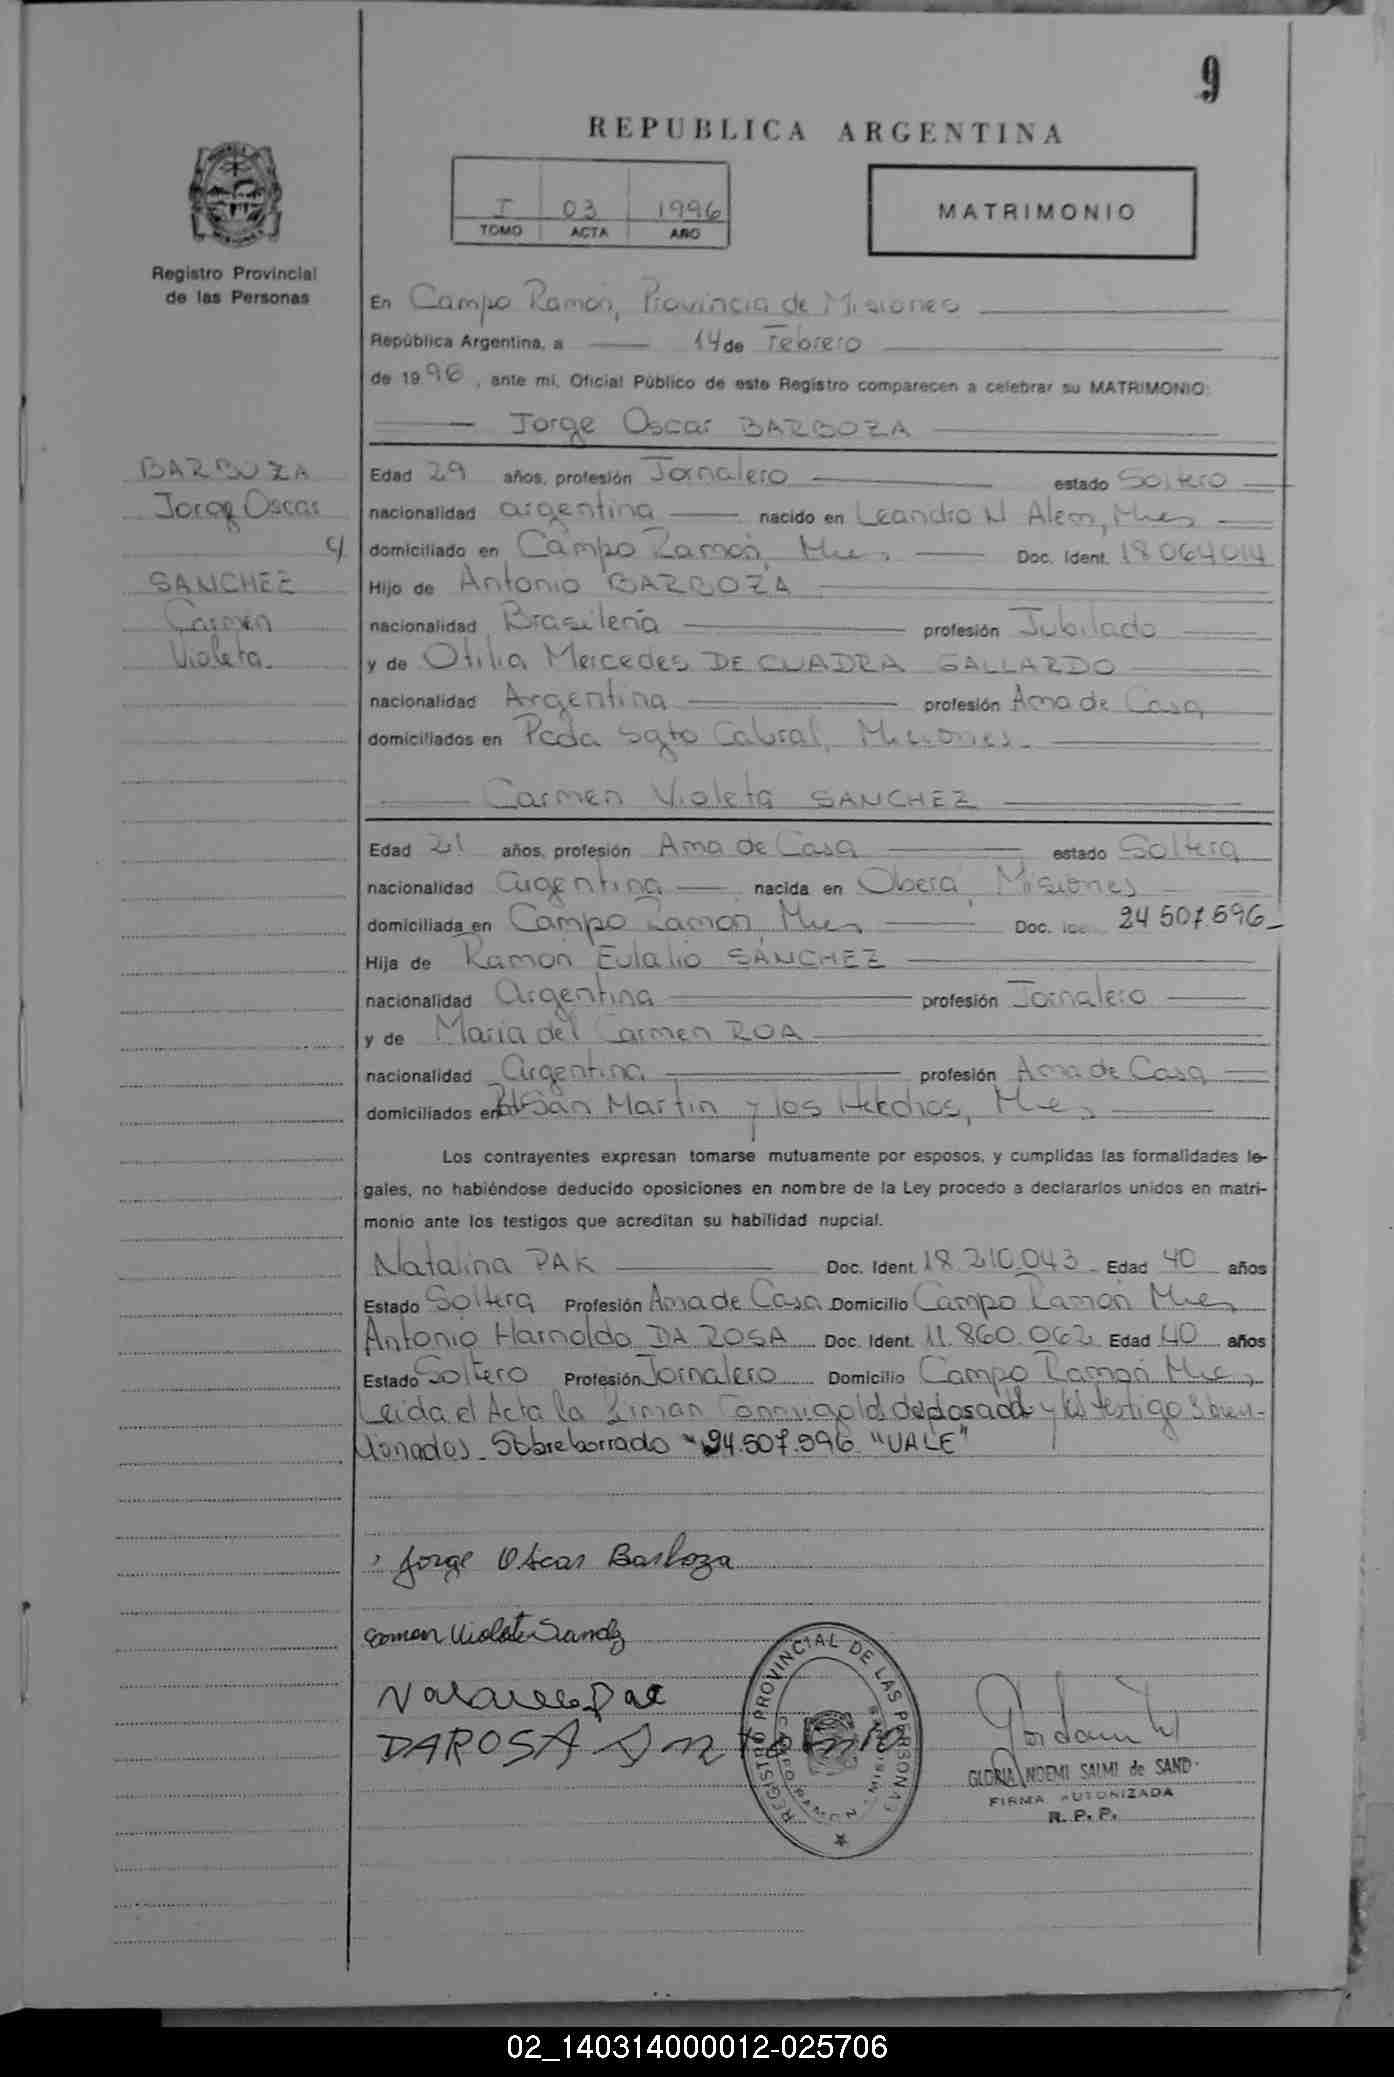 9
REPUBLICA ARGENTINA
I 03 1996
TOMO ACTA AÑO
MATRIMONIO
Registro Provincial
de las Personas
En Campo Ramón, Provincia de Misiones
República Argentina, a 14 de Febrero
de 1996, ante mí, Oficial Público de este Registro comparecen a celebrar su MATRIMONIO:
Jorge Oscar BARBOZA
BARBOZA
Jorge Oscar
c/
SANCHEZ
Carmen
Violeta
Edad 29 años, profesión Jornalero estado Soltero
nacionalidad argentina nacido en Leandro N Alem, Mnes
domiciliado en Campo Ramón, Mnes Doc. Ident. 18064014
Hijo de Antonio BARBOZA
nacionalidad Brasileña profesión Jubilado
y de Otilia Mercedes DE CUADRA GALLARDO
nacionalidad Argentina profesión Ama de Casa
domiciliados en Pcda Sgto Cabral, Misiones
Carmen Violeta SANCHEZ
Edad 21 años, profesión Ama de Casa estado Soltera
nacionalidad argentina nacida en Oberá, Misiones
domiciliada en Campo Ramón, Mnes Doc. 24 507.596
Hija de Ramón Eulalio SÁNCHEZ
nacionalidad argentina profesión Jornalero
y de María del Carmen ROA
nacionalidad argentina profesión Ama de Casa
domiciliados en San Martín y los Helechos, Mnes
Los contrayentes expresan tomarse mutuamente por esposos, y cumplidas las formalidades le-
gales, no habiéndose deducido oposiciones en nombre de la Ley procedo a declararlos unidos en matri-
monio ante los testigos que acreditan su habilidad nupcial.
Natalina PAK Doc. Ident. 18.210.043 Edad 40 años
Estado Soltera Profesión Ama de Casa Domicilio Campo Ramón Mnes
Antonio Harnoldo DA ROSA Doc. Ident. 11.860.062 Edad 40 años
Estado Soltero Profesión Jornalero Domicilio Campo Ramón Mnes
Leída el Acta la firman conmigo los desposados y los testigos
Sobreborrado "24.507.596 "VALE"
Jorge Oscar Barboza
Carmen Violeta Sanchez
DAROSA Antonio
REGISTRO PROVINCIAL DE LAS PERSONAS
GLORIA NOEMI SAIMI de SAND
FIRMA AUTORIZADA
R. P. P.
02_140314000012-025706